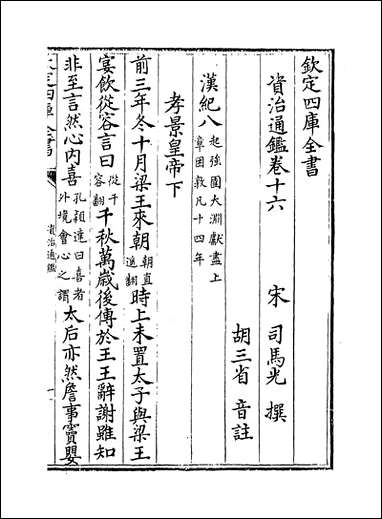 欽定四庫全書
資治通鑑卷十六
宋 司馬光 撰
胡三省 音註
漢紀八起強圉大淵獻盡上章困敦凡十四年
孝景皇帝下
前三年冬十月梁王來朝朝直遙翻時上未置太子與梁王
宴飲從容言曰從千容翻千秋萬歳後傳於王王辭謝雖知
非至言然心內喜孔穎達曰喜者外境會心之謂太后亦然詹事竇嬰
資治通鑑